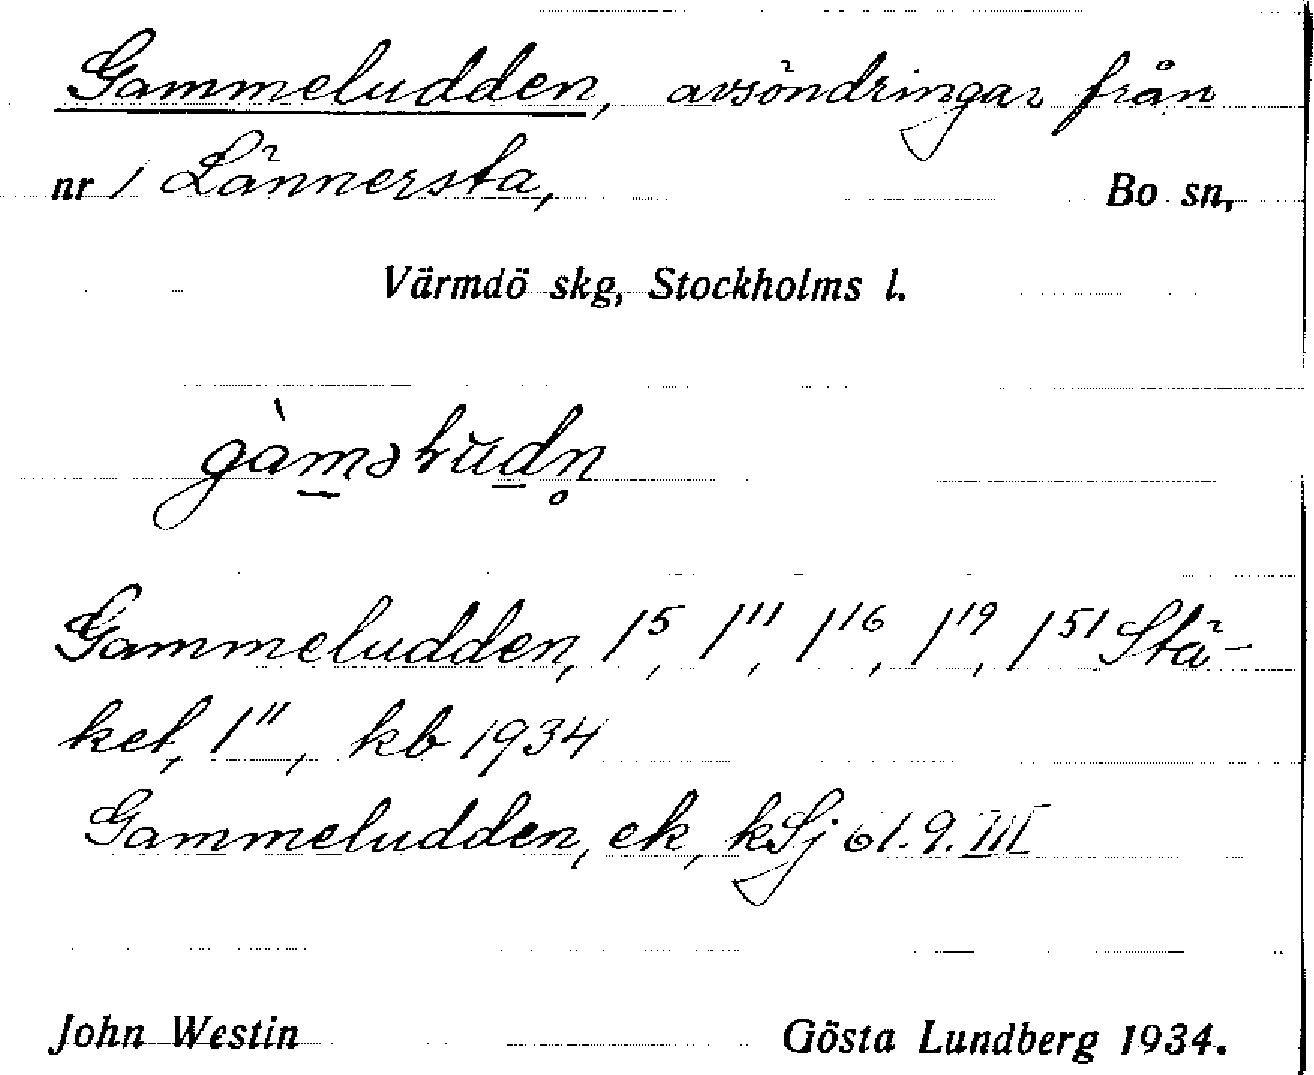 Gammeludden, avsöndringar från
nr 1 Lännersta, Bo sn,
Värmdö skg, Stockholms l.
Gammeludden, 1⁵, 1¹¹, 1¹⁶, 1¹⁹, 1⁵¹ Stä-
ket, 1¹¹, kb 1934
Gammeludden, ek, kSj 61.9.III
John Westin Gösta Lundberg 1934.